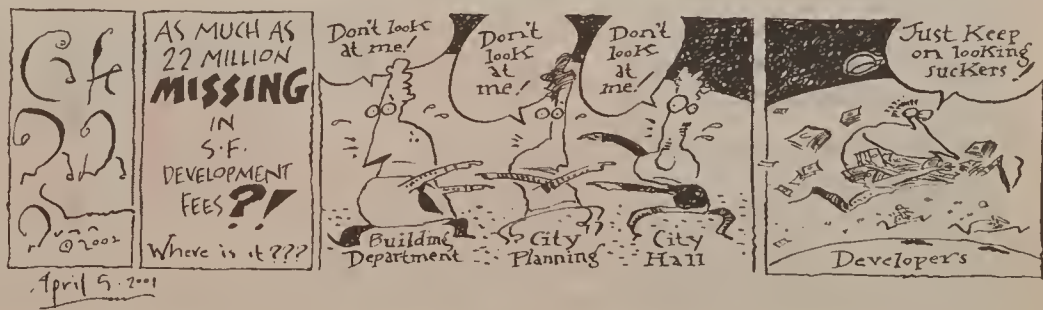 © 2002
AS MUCH AS
22 MILLION
MISSING
IN
S.F.
DEVELOPMENT
FEES?!
Where is it???
Don't look
at me!
Don't
look
at
me!
Don't
look
at
me!
Building
Department
City
Planning
City
Hall
Just Keep
on looking
suckers!
Developers
April 5. 2001